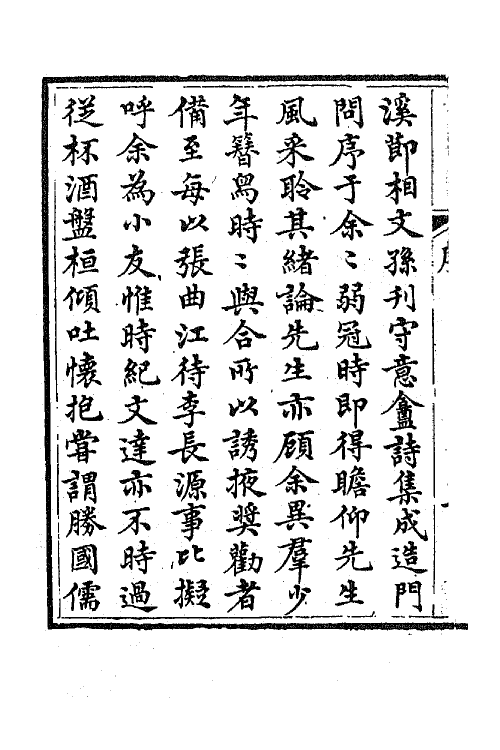 溪節相文孫刊守意龕詩集成造門
問序于余〻弱冠時即得瞻仰先生
風采聆其緒論先生亦頋余異羣少
年簪舄時〻與合所以誘掖奬勸者
備至每以張曲江待李長源事比擬
呼余為小友惟時紀文達亦不時過
從杯酒盤桓傾吐懷抱甞謂勝國儒
序